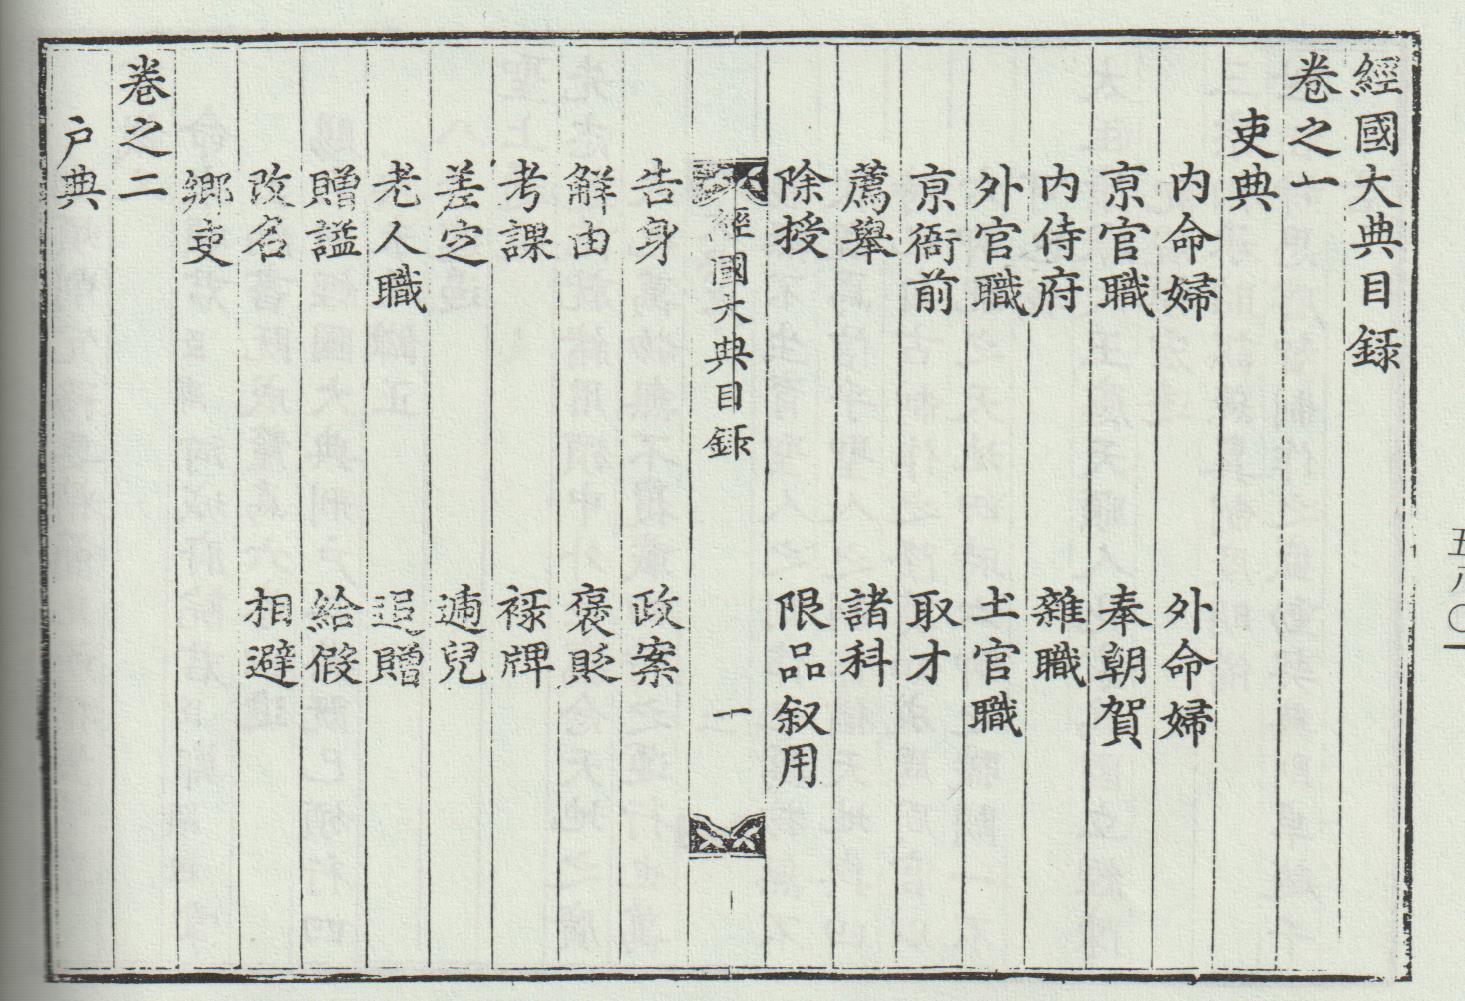 經國大典目録
卷之一
吏典
內命婦 外命婦
京官職 奉朝賀
內侍府 雜職
外官職 土官職
京衙前 取才
薦舉 諸科
除授 限品叙用
經國大典目録 一
告身 政案
解由 褒貶
考課 祿牌
差定 遞兒
老人職 追贈
贈謚 給假
改名 相避
鄉吏
卷之二
户典
五八〇